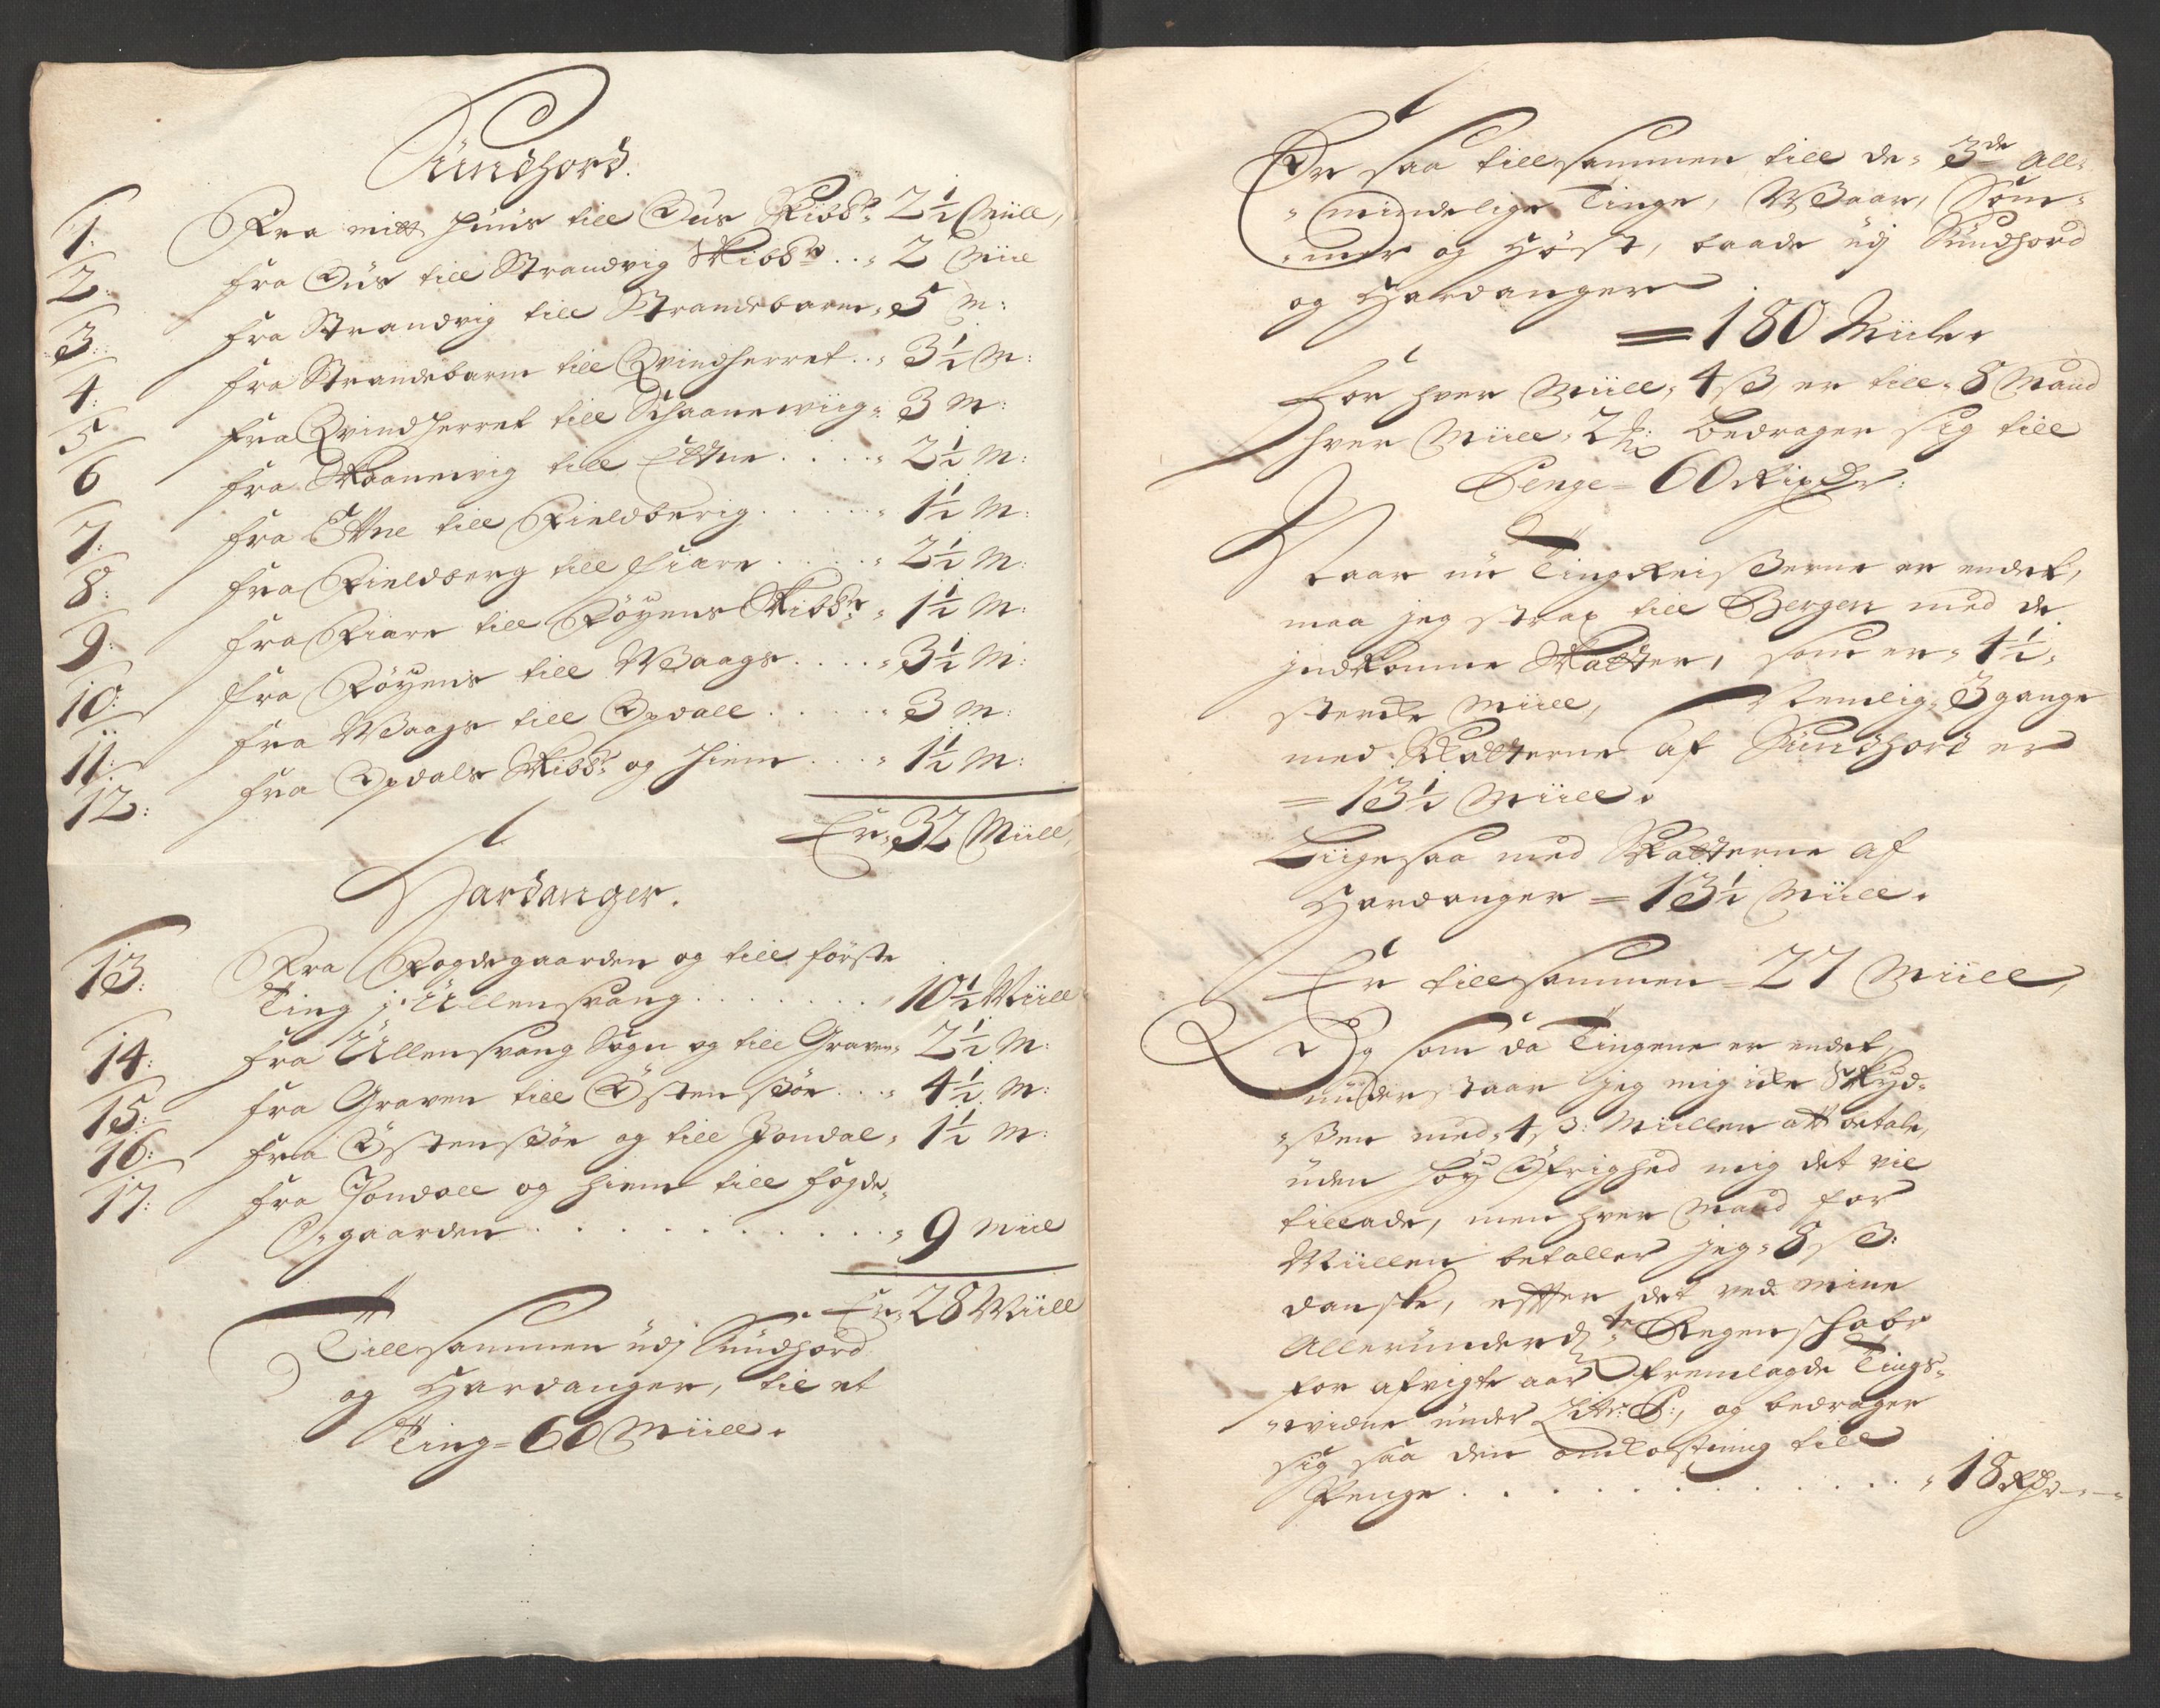 Sundhord.
1: Fra mitt huus till Ous Skibbr: 2½ Miill,
2: fra Ous till Strandvig Skibbr: . . 2 Miil
3: fra Strandvig till Strandebarm, 5 M:
4: fra Strandebarm till Qvindherret . . 3½ M:
5 fra Qvindherret till Schaanewiig 3 M:
6 fra Skaanevig till Ettne . . . . 2½ M:
7: fra Ettne till Fieldberig . . . . . 1½ M:
8: fra Fieldberg till Fiære . . . . 2½ M:
9: fra Fiære till Föyens Skibbr: 1½ M:
10: fra Föyens till Waags . . . . 3½ M:
11: fra Waags till Opdall . . . . . 3 M:
12: fra Opdals Skibbr: og hiem . . . 1½ M:
Er 32 Miill,
Hardanger.
13: Fra Fogdegaarden og till förste
Ting j Ullensvang . . . . . . . 10½ Miill
14: fra Ullensvang Sogn og till Graven 2½ M:
15: fra Graven till Östensöe . . . 4½ M:
16: fra Östensöe og till Jondal 1½ M:
17: fra Jondall og hiem till fogde-
gaarden . . . . . . . . . . . 9 Miil
Er 28 Miill
Tillsammen udj Sundhord
og Hardanger, til et
Ting = 60 Miill.
Er saa tillsammen till de 3de all-
mindelige Tinge, Waar, Som-
mer og Höst, baade udj Sundhord
og Hardanger
= 180 Miile
For hver Miill 4 ß, er till 8 Mand
hver Miill 2 Bedrager sig till
Penge = 60 Rixdr:
Naar nu TingReißerne er endet,
maa jeg strax till Bergen med de
indkomne Skatter, som er 4½
sterke Miill, Nemlig 3 gange
med Skatterne af Sundhord er
= 13½ Miill.
Liigesaa med Skatterne af
Hardanger = 13½ Miill.
Er tillsammen = 27 Miill,
Og som da Tingene er endet
understaar jeg mig icke Skyd-
ßen med 4 ß: Miillen att betale,
uden höy Öfrighed mig det vil
tillade, men hver Mand for
Miillen betaller jeg 8 ß:
danske, effter det ved mine
Allerunderd:te Regenschabr
for afvigte aar fremlagde Tings-
vidne under Litr: , og bedrager
sig saa den omkostning till
Penge . . . . . . . . . . . 18 Rdr